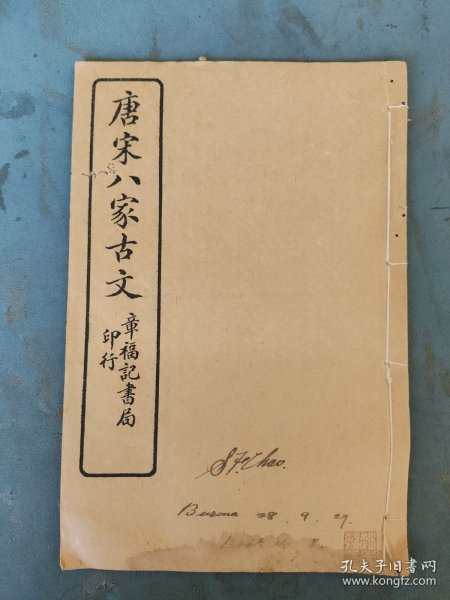 唐宋八家古文
章福記書局
印行
S.F. Chao.
28. 9. 29.
Book No
孔夫子旧书网
www.kongfz.com